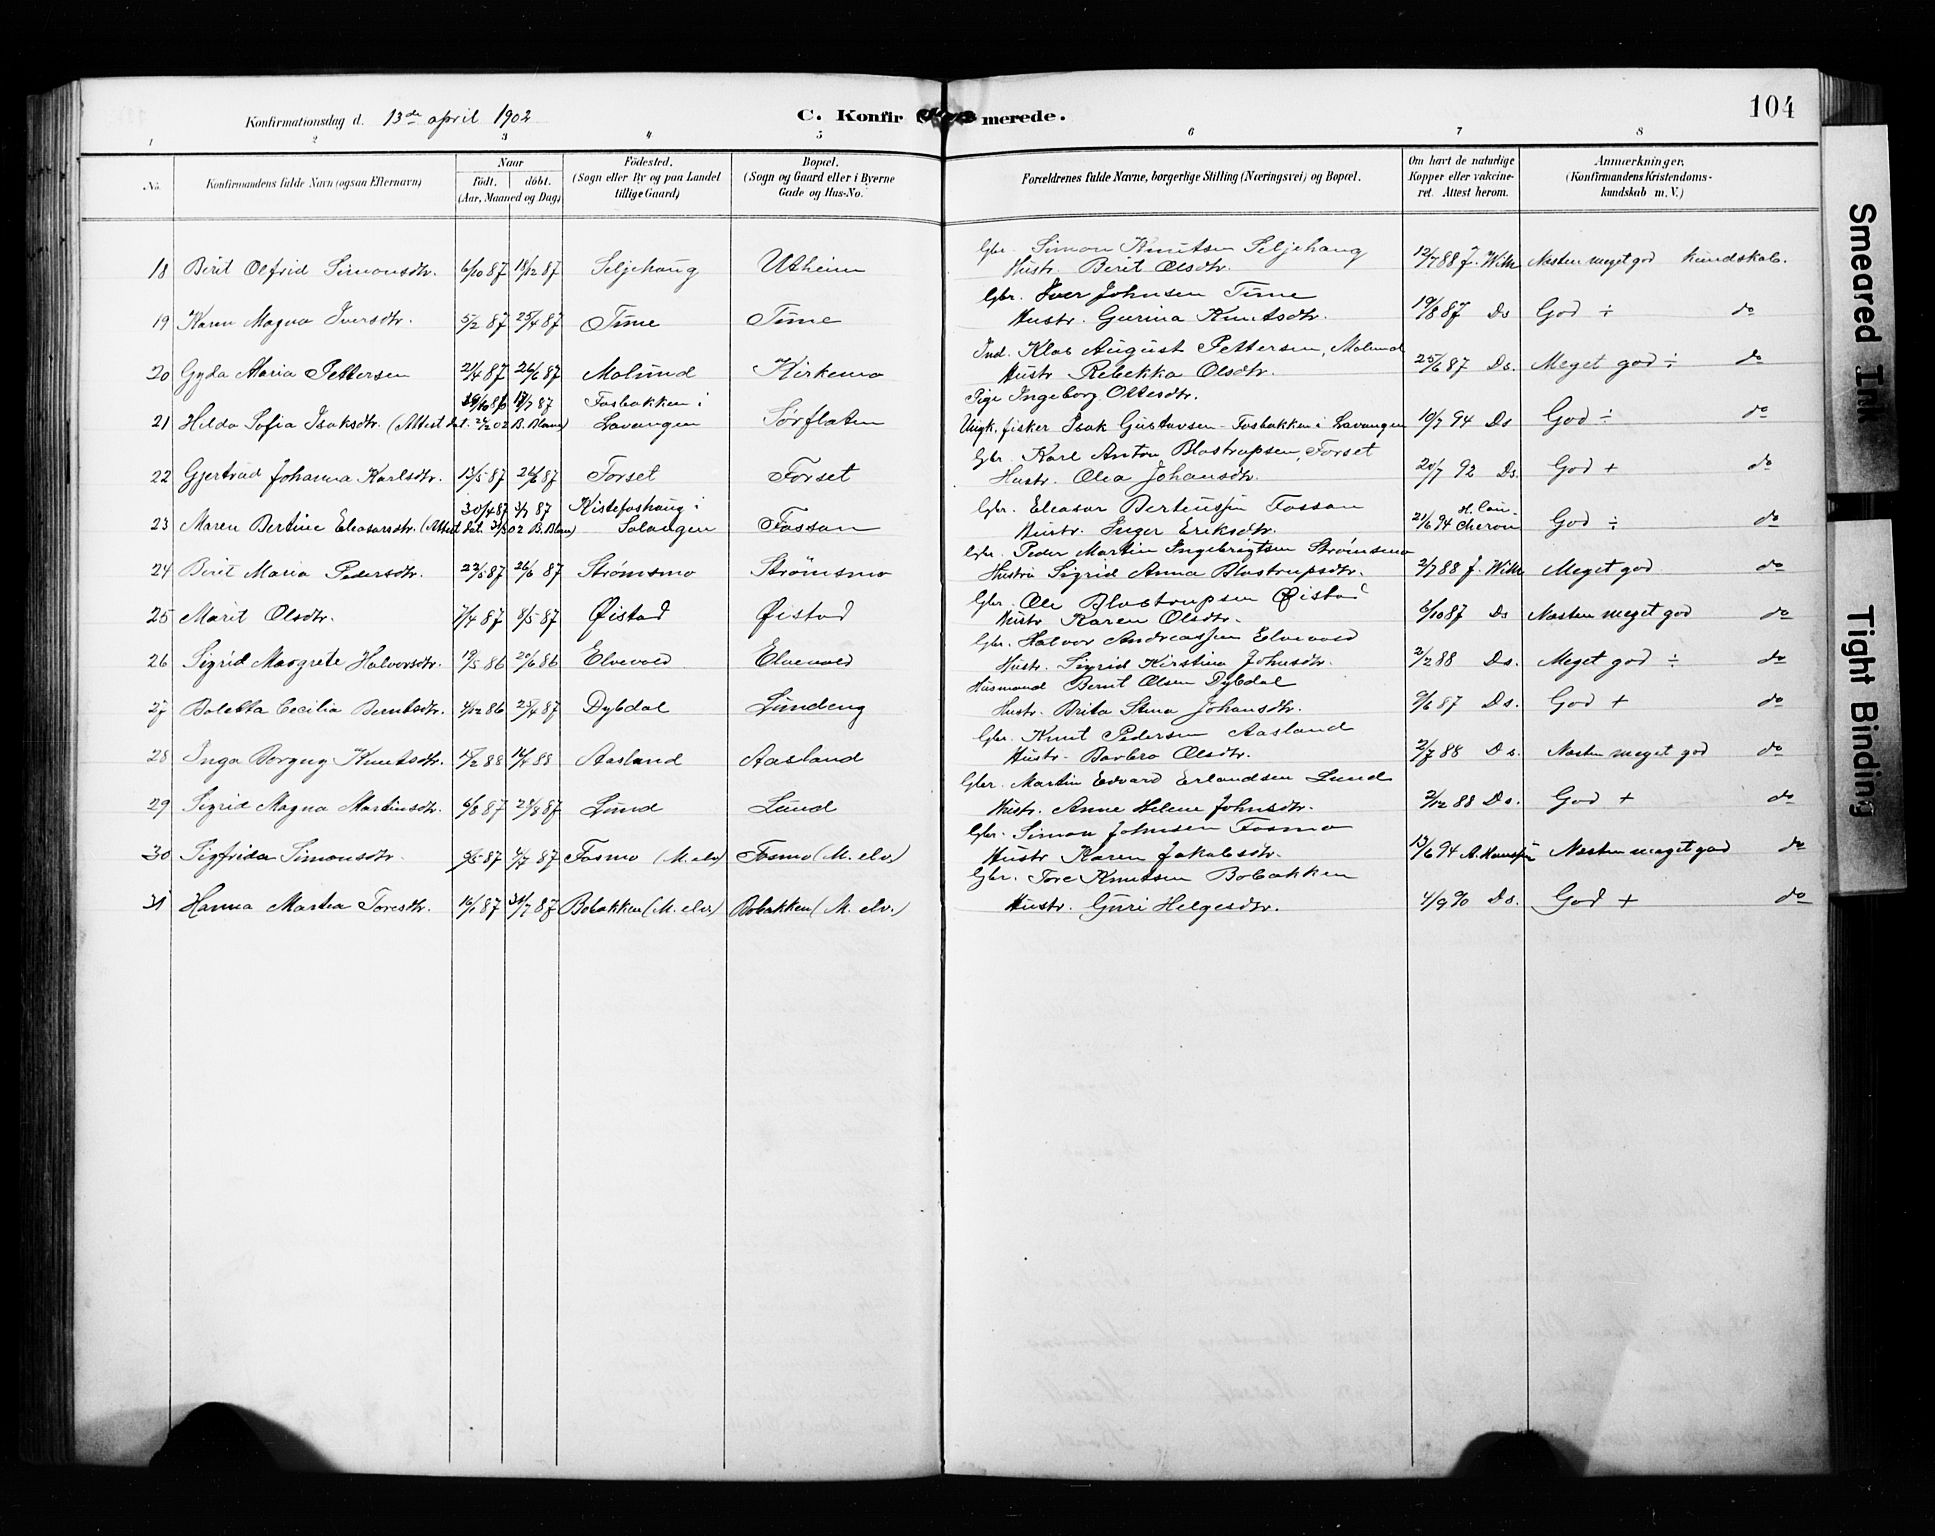 Konfirmationsdag d. 13de april 1902
C. Konfirmerede.
104
1 2 3 4 5 6 7 8
No. Konfirmandens fulde Navn (ogsaa Efternavn) Naar født. døbt. (Aar, Maaned og Dag) Fødested. (Sogn eller By og paa Landet tillige Gaard) Bopæl. (Sogn og Gaard eller i Byerne Gade og Hus-No. Forældrenes fulde Navne, borgerlige Stilling (Næringsvei) og Bopæl. Om havt de naturlige Kopper eller vakcineret. Attest herom. Anmærkninger. (Konfirmandens Kristendomskundskab m. V.)
Gbr. Simon Knutsen Seljehaug
18 Berit Olfrid Simonsdtr. 6/10 87 18/12 87 Seljehaug Utheim Hustr. Berit Olsdtr. 12/7 88 J. Wilh Næsten meget god kundskab.
Gbr. Iver Johnsen Time
19 Karen Magna Iversdtr. 5/2 87 25/4 87 Time Time Hustr. Gurina Knutsdtr. 19/8 87 Ds God ÷ do
Ind. Klas August Pettersen, Molund
20 Gyda Maria Pettersen 21/4 87 26/6 87 Molund Kirkemo Hustr Rebekka Olsdtr. 25/6 87 Ds. Meget god ÷ do
17/7 87 Fosbakken i Pige Ingeborg Ottesdtr.
21 Hilda Sofia Isaksdtr. (Attest dat. 27/2 02 B. Blans) Lavangen Sørflaten Ungk. fisker Isak Gustavsen - Fosbakken i Lavangen 10/7 94 Ds God ÷ do
Gbr. Karl Anton Blostrupsen, Forset
22 Gjertrud Johanna Karlsdtr. 15/5 87 26/6 87 Forset Forset Hustr. Olea Johansdtr. 20/7 92 Ds. God + do
30/4 87 3/7 87 Kistefoshaug i Gbr. Eleasar Bertheussen Fossan
23 Maren Bertine Eleasarsdtr. (Attest dat. 3/3 02 B. Blans) Salangen Fossan Hustr. Inger Eriksdtr. 21/6 94 God ÷ do
Gbr. Peder Martin Ingebrigtsen Strømsmo
24 Berit Maria Pedersdtr. 22/5 87 26/6 87 Strømsmo Strømsmo Hustru Sigrid Anna Blostrupsdtr. 2/7 88 J. Wilh Meget god do
Gbr. Ole Blostrupsen Øistad
25 Marit Olsdtr. 7/4 87 8/5 87 Øistad Øistad Hustr Karen Olsdtr. 6/10 87 Ds Næsten meget god do
Gbr. Halvor Andreassen Elvevold
26 Sigrid Margrete Halvorsdtr. 19/5 86 20/6 86 Elvevold Elvevold Hustr. Sigrid Kirstina Johnsdtr. 2/2 88 Ds. Meget god ÷ do
Husmand Bernt Olsen Dybdal
27 Boletta Cecilia Berntsdtr. 4/12 86 25/4 87 Dybdal Lundeng Hustr. Brita Stina Johansdtr. 9/6 87 Ds. God + do
Gbr. Knut Pedersen Aasland
28 Inga Borgny Knutsdtr. 15/2 88 16/4 88 Aasland Aasland Hustr. Barbro Olsdtr. 2/7 88 Ds. Næsten meget god do
Gbr. Martin Edvard Erlandsen Lund
29 Sigrid Magna Martinsdtr. 6/8 87 28/8 87 Lund Lund Hustr. Anne Helene Johnsdtr. 2/12 88 Ds. God + do
Gbr. Simon Johnsen Fosmo
30 Sigfrida Simonsdtr. 5/5 87 4/7 87 Fosmo (M. elv) Fosmo (M. elv.) Hustr Karen Jakobsdtr. 13/6 94 A. Hanssen Næsten meget god do
Gbr. Tore Knutsen Bobakken
31 Hanna Martea Toresdtr. 16/1 87 31/7 87 Bobakken (M. elv) Bobakken (M. elv.) Hustr. Guri Helgesdtr. 4/9 90 Ds. God + do
Smeared Ink
Tight Binding